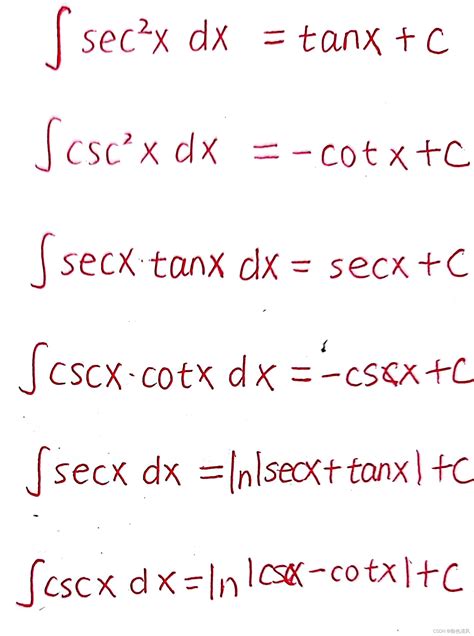 ∫ sec²x dx = tanx + C
∫ csc²x dx = -cotx + C
∫ secx·tanx dx = secx + C
∫ cscx·cotx dx = -cscx + C
∫ secx dx = ln|secx + tanx| + C
∫ cscx dx = ln|cscx - cotx| + C